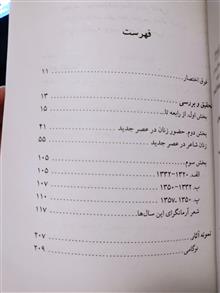 فهرست
ذوق اختصار ........ ۱۱
تحقیق و بررسی ........ ۱۳
بخش اول. از رابعه تا... ........ ۱۵
بخش دوم. حضور زنان در عصر جدید ........ ۴۱
زنان شاعر در عصر جدید ........ ۵۵
بخش سوم. ........ ۱۰۵
الف. ۱۳۲۰-۱۳۳۲ ........ ۱۰۵
ب. ۱۳۳۲-۱۳۵۰ ........ ۱۰۷
پ. ۱۳۵۰-۱۳۵۷ ........ ۱۱۰
شعر آرمانگرای این سال‌ها ........ ۱۱۷
نمونه آثار ........ ۲۰۷
نوگامی ........ ۲۰۹